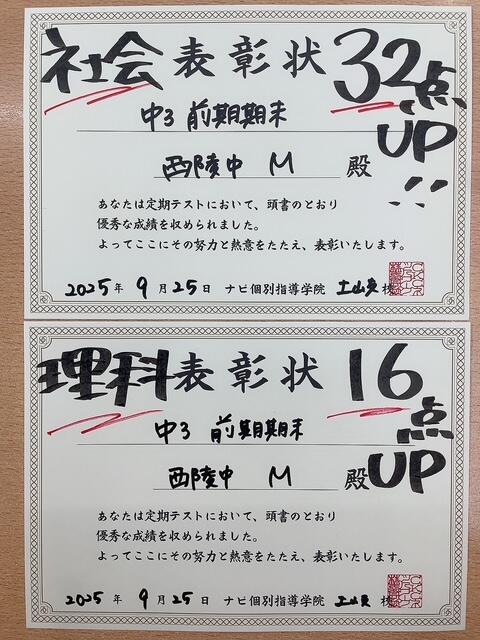 社会 表彰状 32点UP!!
中3 前期期末
西陵中 M 殿
あなたは定期テストにおいて、頭書のとおり
優秀な成績を収められました。
よってここにその努力と熱意をたたえ、表彰いたします。
2025年 9月25日 ナビ個別指導学院 土山東校
理科 表彰状 16点UP
中3 前期期末
西陵中 M 殿
あなたは定期テストにおいて、頭書のとおり
優秀な成績を収められました。
よってここにその努力と熱意をたたえ、表彰いたします。
2025年 9月25日 ナビ個別指導学院 土山東校